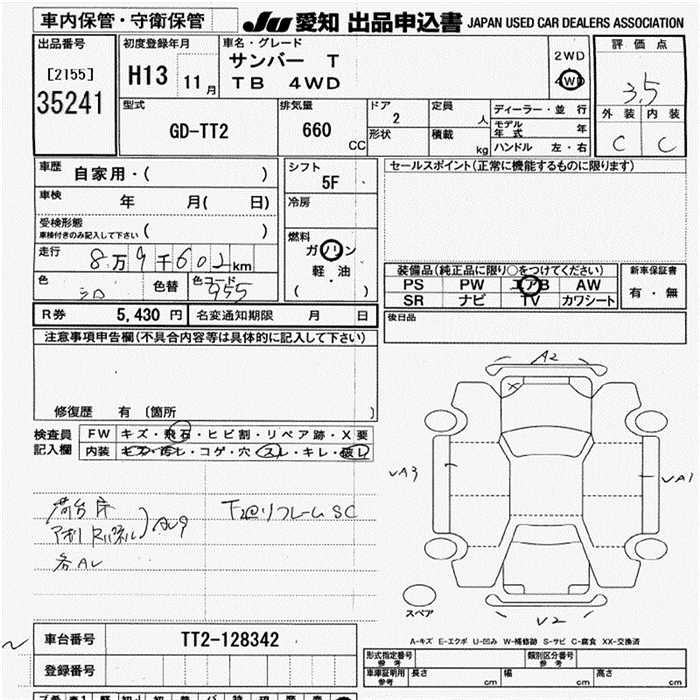 車内保管・守衛保管 JU 愛知 出品申込書 JAPAN USED CAR DEALERS ASSOCIATION
出品番号 初度登録年月 車名・グレード 評価点
[2155] H13 11月 サンバー T 2WD
35241 TB 4WD 4WD 3.5
型式 排気量 ドア 定員 ディーラー・並行 外装 内装
GD-TT2 660 CC 2 人 モデル年式 年 C C
形状 積載 kg ハンドル 左・右
車歴 自家用・( ) シフト 5F セールスポイント(正常に機能するものに限ります)
車検 年 月( 日) 冷房
受検形態
車検付きのみ記入して下さい ( ) 燃料
走行 8万9千602km ガソリン
色 シロ 色替 色コード 955 軽・油
( ・ )
装備品(純正品に限り○をつけてください) 新車保証書
PS PW エアB AW 有・無
SR ナビ TV カワシート
R券 5,430円 名変通知期限 月 日 後日品
注意事項申告欄(不具合内容等は具体的に記入して下さい)
修復歴 有 〔箇所 〕
検査員 FW キズ・飛石・ヒビ割・リペア跡・X要
記入欄 内装 キズ・汚レ・コゲ・穴・スレ・キレ・破レ
A2
VA3 VA1
荷台
各AU
スペア
V2
A-キズ E-エクボ U-凹み W-補修跡 S-サビ C-腐食 XX-交換済
車台番号 TT2-128342
登録番号
形式指定番号 参考 類別区分番号 参考
車庫証明用 参考 長さ cm 幅 cm 高さ cm